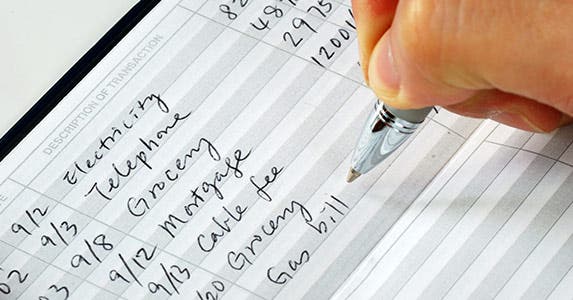 DESCRIPTION OF TRANSACTION
9/2 Electricity 82
9/3 Telephone 48
9/8 Grocery 2975
9/12 Mortgage 1200
9/13 Cable fee
20 Grocery
Gas bill